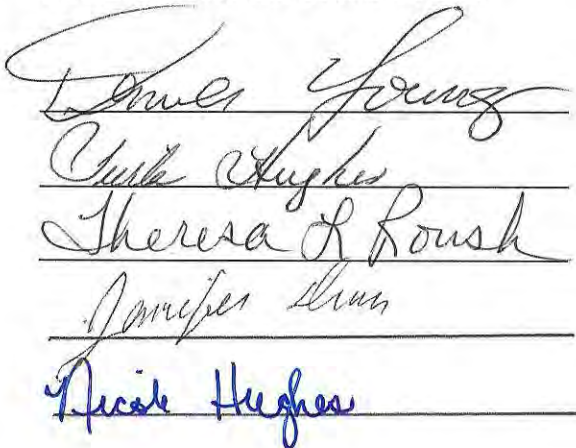 Denver Young
Hughes
Theresa L Roush
Jennifer
Nicole Hughes